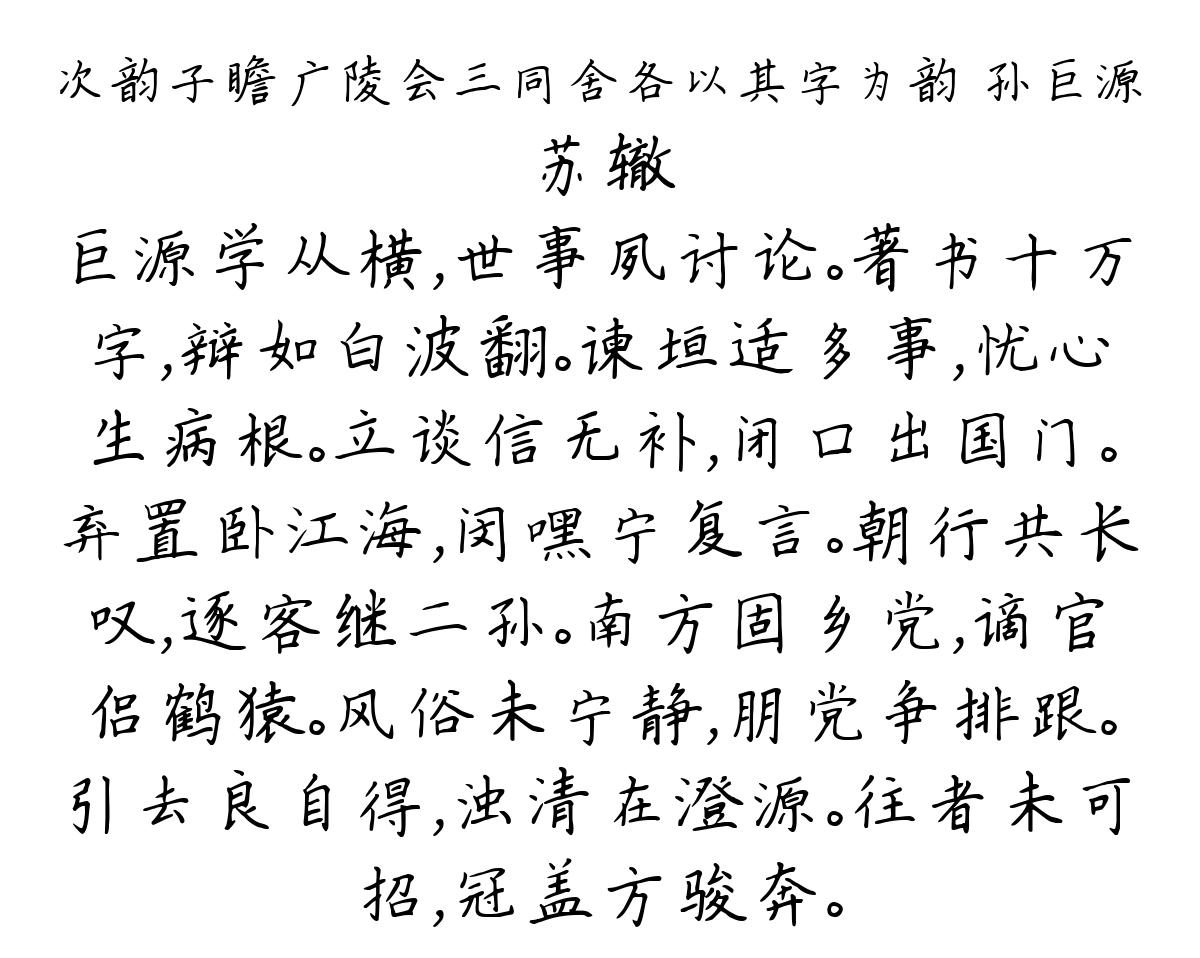 次韵子瞻广陵会三同舍各以其字为韵 孙巨源
苏辙
巨源学从横,世事夙讨论。著书十万
字,辩如白波翻。谏垣适多事,忧心
生病根。立谈信无补,闭口出国门。
弃置卧江海,闵嘿宁复言。朝行共长
叹,逐客继二孙。南方固乡党,谪官
侣鹤猿。风俗未宁静,朋党争排跟。
引去良自得,浊清在澄源。往者未可
招,冠盖方骏奔。